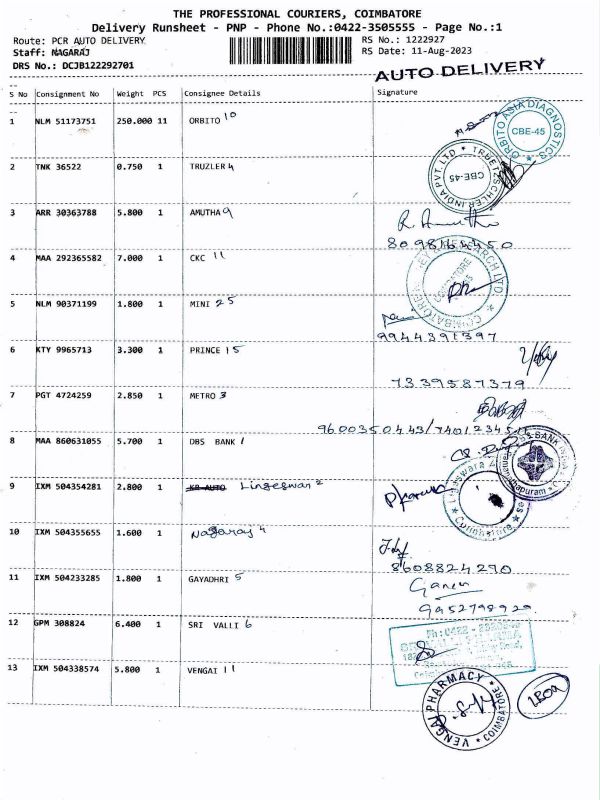 THE PROFESSIONAL COURIERS, COIMBATORE
Delivery Runsheet - PNP - Phone No.:0422-3505555 - Page No.:1
Route: PCR AUTO DELIVERY
RS No.: 1222927
Staff: NAGARAJ
RS Date: 11-Aug-2023
DRS No.: DCJB122292701
AUTO DELIVERY
S No Consignment No Weight PCS Consignee Details Signature
1 NLM 51173751 250.000 11 ORBITO 10
ORBITO ASIA DIAGNOSTICS
CBE-45
2 TNK 36522 0.750 1 TRUZLER 4
TRUETZSCHLER INDIA PVT. LTD
CBE-45
3 ARR 30363788 5.800 1 AMUTHA 9
4 MAA 292365582 7.000 1 CKC 11
COIMBATORE
5 NLM 90371199 1.800 1 MINI 25
9944391397
6 KTY 9965713 3.300 1 PRINCE 15
7339587379
7 PGT 4724259 2.850 1 METRO 3
8 MAA 860631055 5.700 1 DBS BANK 1
9 IXM 504354281 2.800 1 KR AUTO Lingeswar 2
Coimbatore
10 IXM 504355655 1.600 1 Nagaraj 4
8608824290
11 IXM 504233285 1.800 1 GAYADHRI 5
9952798920
12 GPM 308824 6.400 1 SRI VALLI 6
13 IXM 504338574 5.800 1 VENGAI 11
VENGAI PHARMACY
COIMBATORE